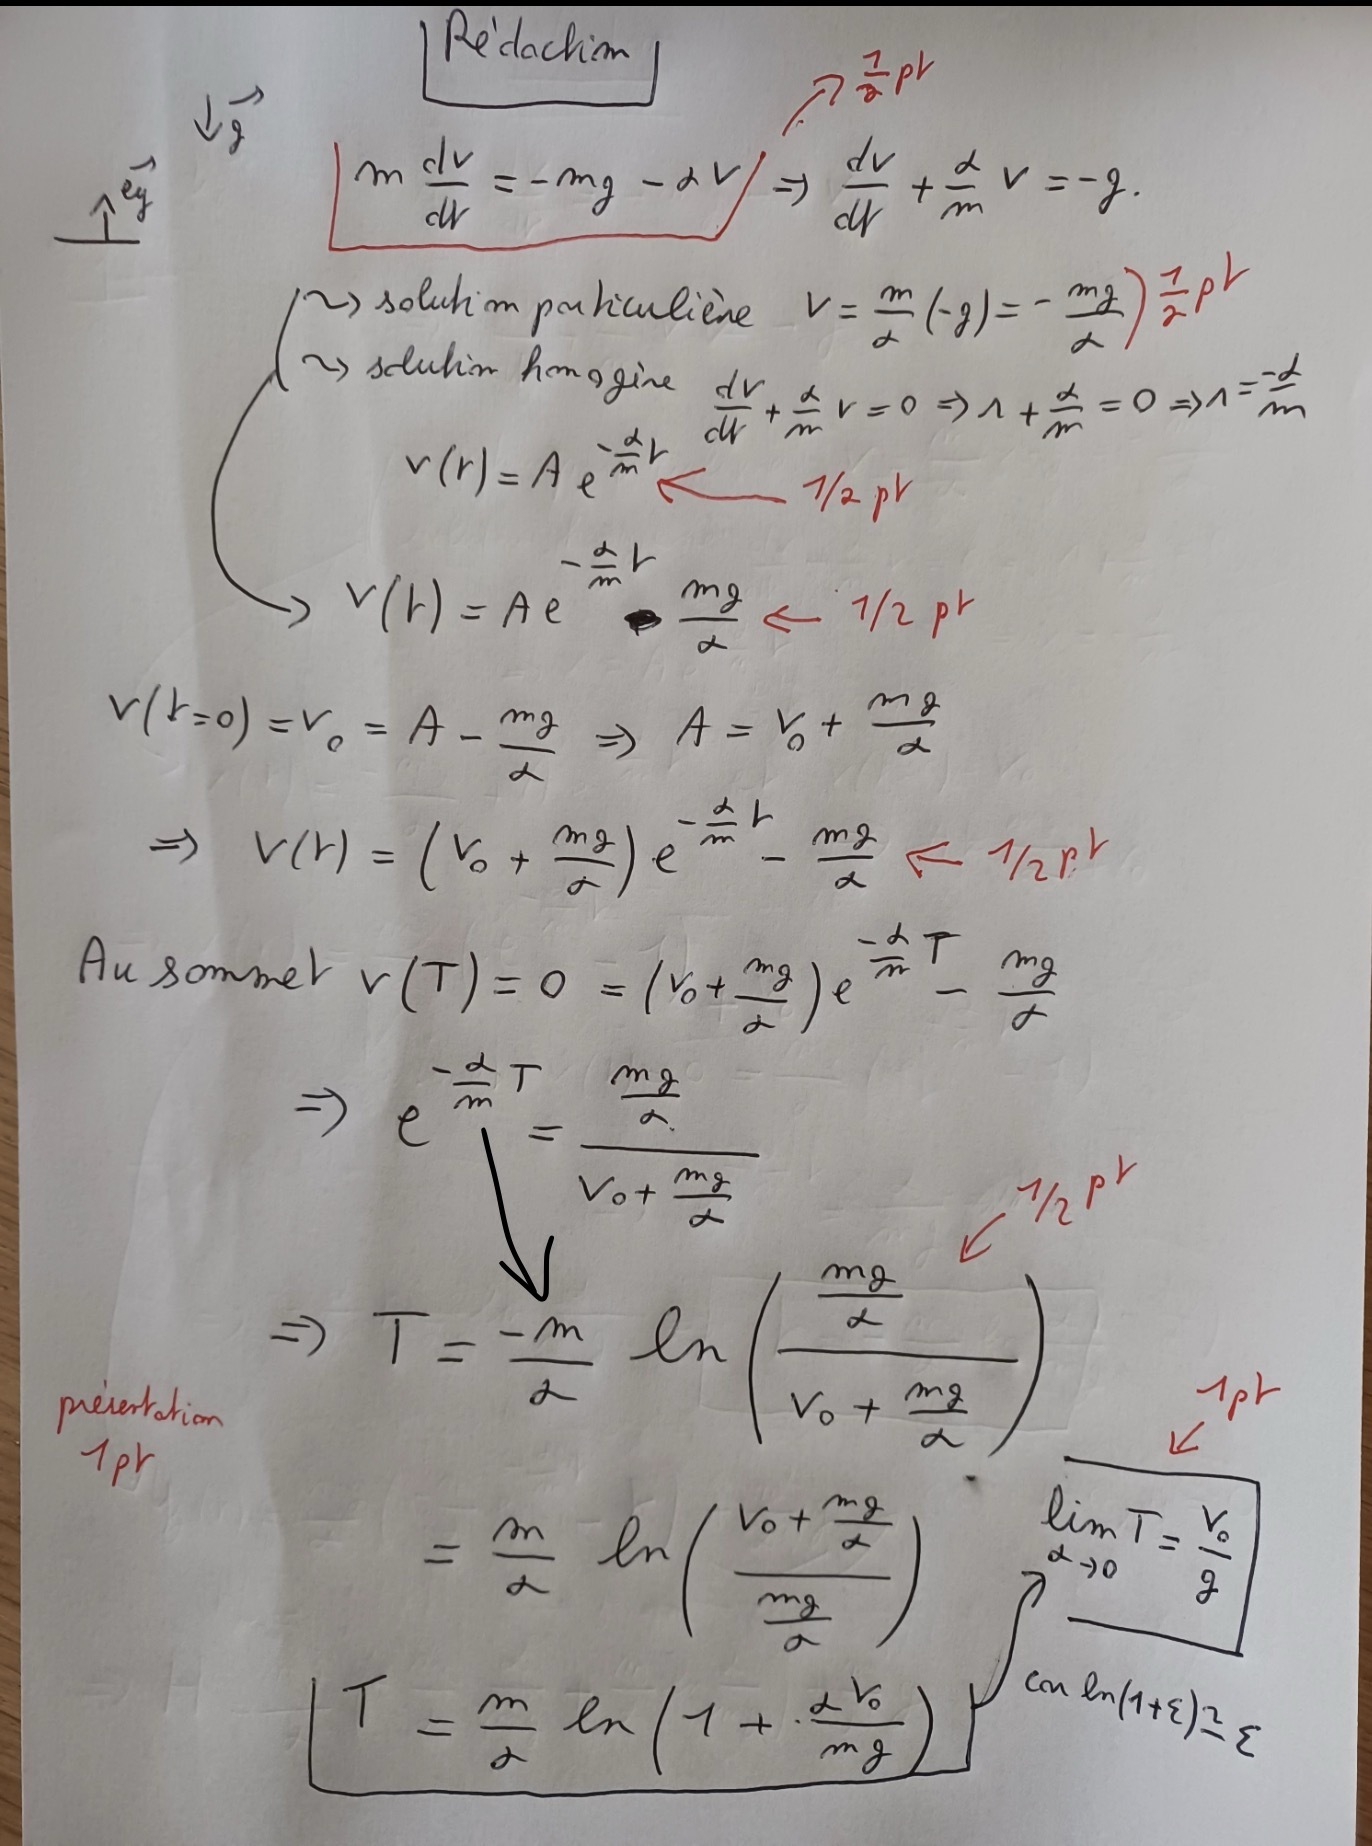 Rédaction
↓ g⃗
e⃗y
m dv/dt = -mg - αv ↗ 1/2 pt
⇒ dv/dt + α/m v = -g.
⤳ solution particulière v = m/α (-g) = - mg/α ) 1/2 pt
⤳ solution homogène dv/dt + α/m v = 0 ⇒ r + α/m = 0 ⇒ r = -α/m
v(t) = A e^(-α/m t) ← 1/2 pt
v(t) = A e^(-α/m t) - mg/α ← 1/2 pt
v(t=0) = v₀ = A - mg/α ⇒ A = v₀ + mg/α
⇒ v(t) = (v₀ + mg/α) e^(-α/m t) - mg/α ← 1/2 pt
Au sommet v(T) = 0 = (v₀ + mg/α) e^(-α/m T) - mg/α
⇒ e^(-α/m T) = (mg/α) / (v₀ + mg/α)
⇒ T = -m/α ln( (mg/α) / (v₀ + mg/α) ) ← 1/2 pt
présentation
1 pt
= m/α ln( (v₀ + mg/α) / (mg/α) )
1 pt
lim α→0 T = v₀/g
T = m/α ln(1 + αv₀/mg)
car ln(1+ε) ≃ ε